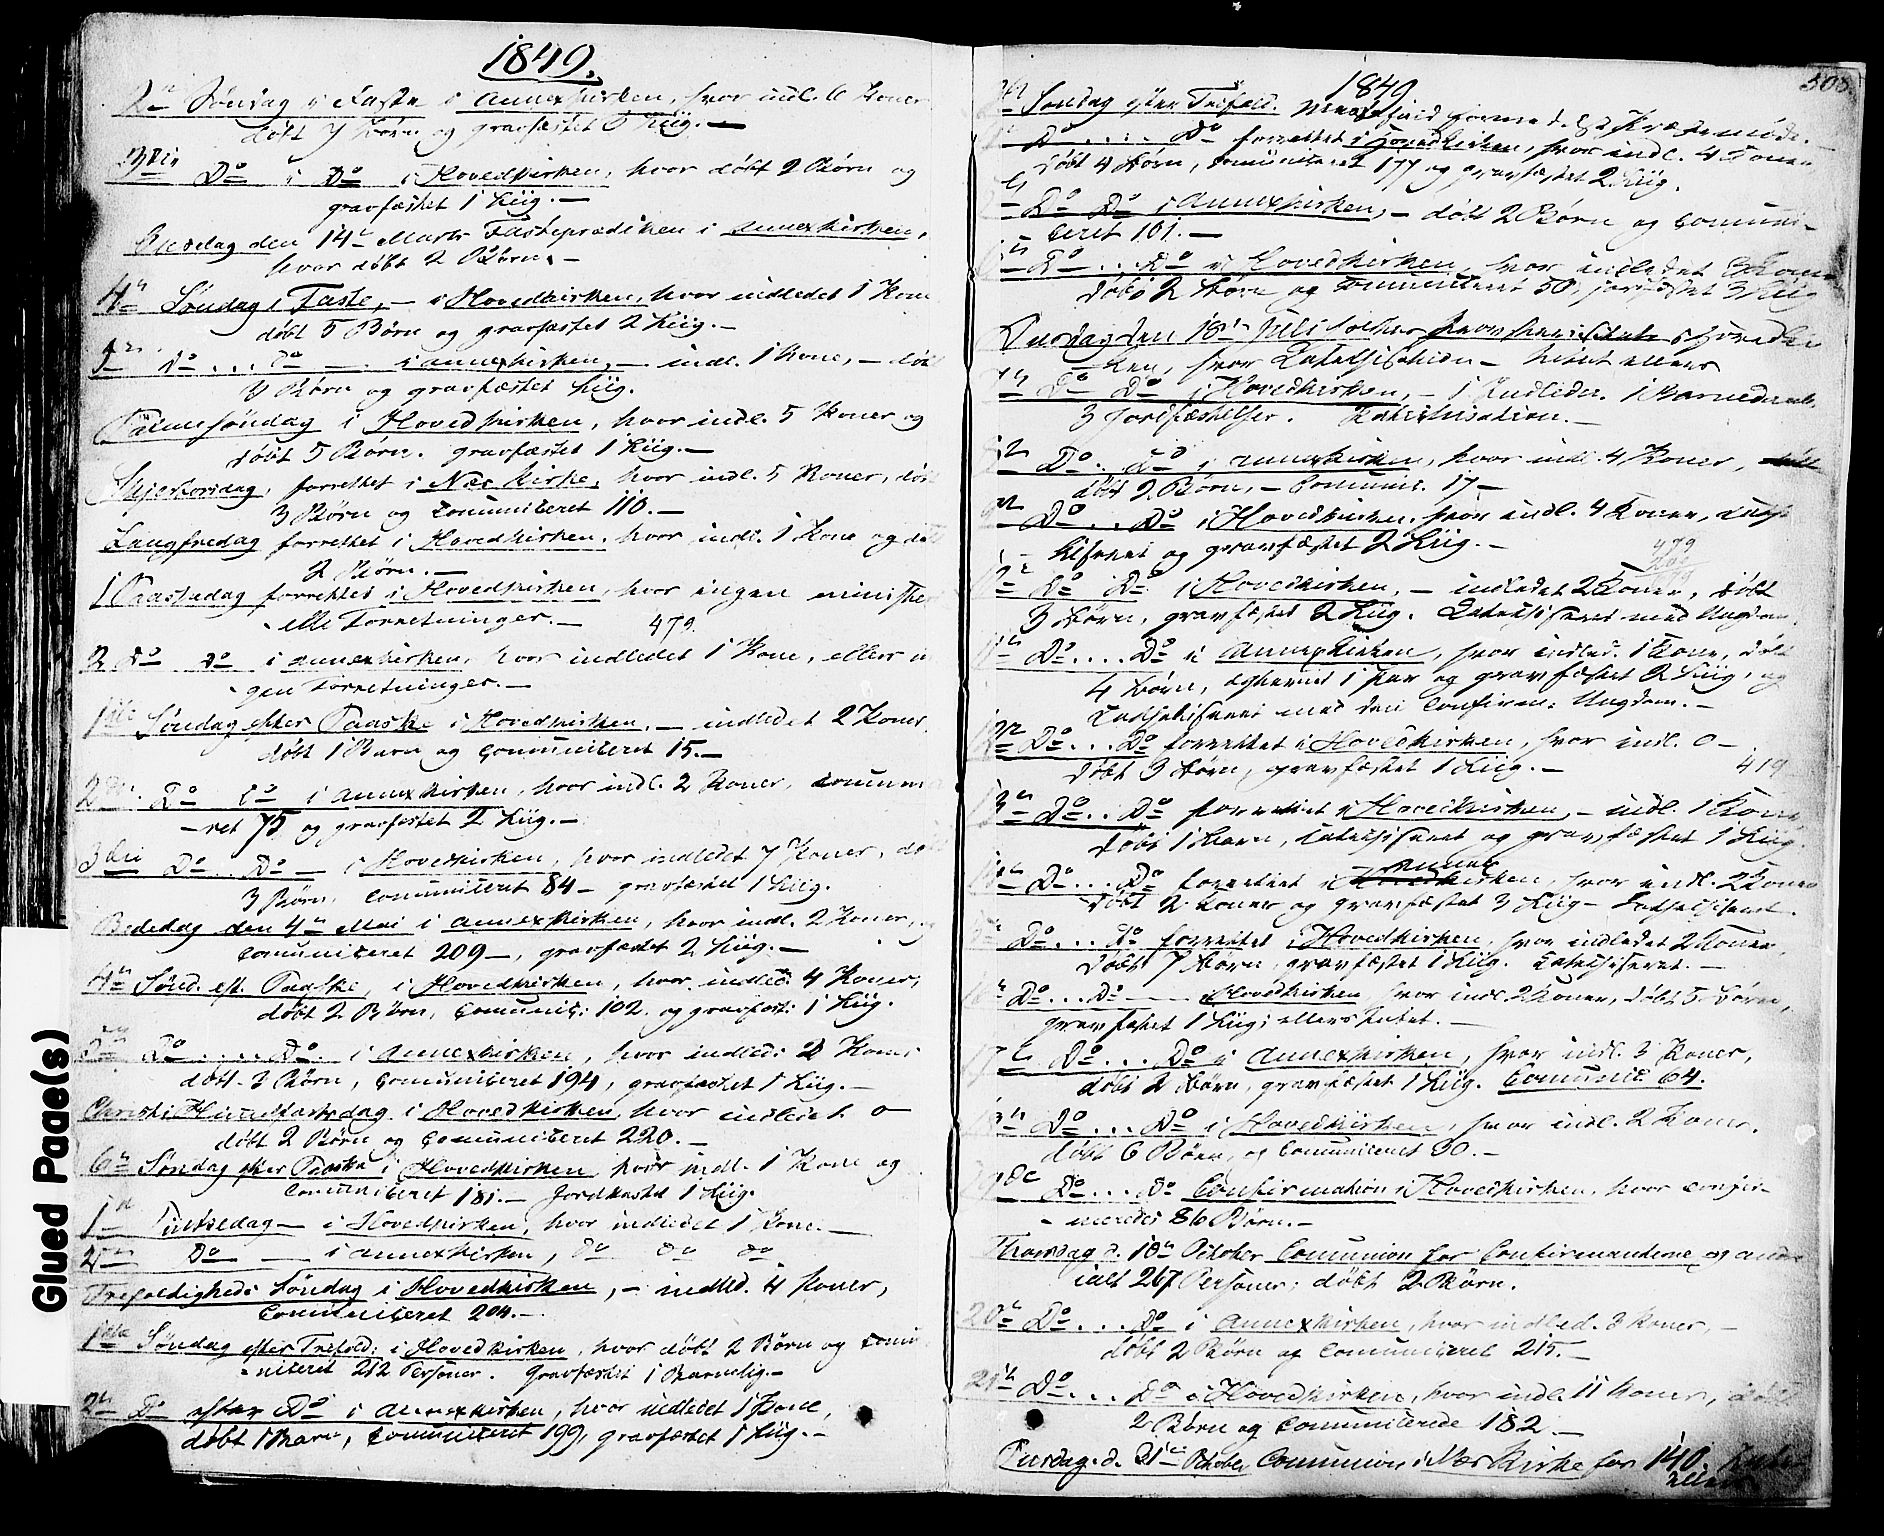 1849.
2n Søndag i Faste i Annexkirken, hvor indl. 6 Koner
døbt 7 Børn og gravfæstet 6 Liig.—
3die Do i Do i Hovedkirken, hvor døbt 2 Børn og
gravfæstet 1 Liig.—
Onsdag den 14n Marts Fasteprædiken i Annexkirken,
hvor døbt 2 Børn.—
4n Søndag i Faste,— i Hovedkirken, hvor indledet 1 Kone
døbt 5 Børn og gravfæstet 2 Liig.—
Do ... Do — i Annexkirken,— indl. 1 Kone,— døbt
3 Børn og gravfæstet Liig.
Palmesøndag i Hovedkirken, hvor indl. 5 Koner og
døbt 5 Børn. gravfæstet 1 Liig.—
Skjertorsdag, forrettet i Næs Kirke, hvor indl. 5 Koner, døbt
3 Børn og Comuniceret 110.—
Langfredag forrettet i Hovedkirken, hvor indl. 1 Kone og døbt
2 Børn.—
1 Paaskedag forrettet i Hovedkirken, hvor ingen ministe-
-elle Forretninger.— 479.
2 Do Do i Annexkirken, hvor indledet 1 Kone, ellers in
gen Forretninger.—
1ste Søndag efter Paaske i Hovedkirken,— indledet 2 Koner,
døbt 1 Barn og Comuniceret 15.—
2den Do Do i Annexkirken, hvor indl. 2 Koner, Comunice
-ret 75 og gravfæstet 2 Liig.—
3die Do .. Do — i Hovedkirken, hvor indledet 7 Koner, døbt
3 Børn, Comuniceret 84— gravfæstet 1 Liig.
Bededag den 4n Mai i Annexkirken, hvor indl. 2 Koner, og
Comuniceret 209—, gravfæstet 2 Liig.—
4n Sønd. eft. Paaske, i Hovedkirken, hvor indled. 4 Koner,
døbt 2 Børn, Comunic: 102. og gravfæst: 1 Liig.
Do .... Do. i Annexkirken, hvor indled: 2 Koner
døbt 3 Børn, Comuniceret 194, gravfæstet 1 Liig.—
Christi Himmelfartsdag i Hovedkirken, hvor indledet 0—
døbt 2 Børn og Comuniceret 220.—
6n Søndag efter Paaske i Hovedkirken, hvor indl. 1 Kone og
Comuniceret 181.— Jordkastet 1 Liig.
1st Pintsedag— i Hovedkirken, hvor indledet 1 Kone.—
2den Do — i Annexkirken, do do do
Trefoldigheds Søndag i Hovedkirken,— indled. 4 Koner,
Comuniceret 204.—
1ste Søndag efter Trefold: i Hovedkirken, hvor døbt 2 Børn og Comu-
-niceret 212 Personer. Gravfæstet 1 Barnelig.—
2n Do efter Do i Annexkirken, hvor indledet 1 Kone,
døbt 1 Barn, Comuniceret 199, gravfæstet 1 Liig.—
1849. 303.
Søndag efter Trefold.
Do .... Do forrettet i Hovedkirken, hvor indl. 4 Koner,
døbt 4 Børn, Comuniceret 177 og gravfæstet 2 Liig.
Do Do i Annexkirken,— døbt 2 Børn og Comuni-
-ceret 101.—
Do ... Do i Hovedkirken, hvor indledet 3 Koner
døbt 2 Børn og Comuniceret 50, gravfæstet 3 Liig
den 18n Juli
ken, hvor
Do Do i Hovedkirken,— 1 Indleden. 1 Barnedaab,
3 Jordfæstelser. Katekisation.—
Do. Do i Annexkirken, hvor indl. 4 Koner,
døbt 2 Børn,— Comunic. 17—
Do ... Do i Hovedkirken, hvor indl. 4 Koner,
og gravfæstet 2 Liig.— 479
Do Do i Hovedkirken,— indledet 2 Koner, døbt
3 Børn, gravfæstet 2 Liig. Catechiseret med Ungdom.
Do .... Do i Annexkirken, hvor indled. 1 Kone, døbt
4 Børn, ægteviet 1 Par og gravfæstet 2 Liig, og
Catechiseret med den Confirm: Ungdom.—
12n Do ... Do forrettet i Hovedkirken, hvor indl. 0—
døbt 3 Børn, gravfæstet 1 Liig.— 419
13n Do .. Do forrettet i Hovedkirken,— indl. 1 Kone
døbt 1 Barn, Catechiseret og gravfæstet 1 Liig.
Annex
Do ... Do forrettet i Hovedkirken, hvor indl. 2 Koner
døbt 2 Koner og gravfæstet 3 Liig— Catechiseret.
Do ... Do forrettet i Hovedkirken, hvor indledet 2 Koner,
døbt 7 Børn, gravfæstet 1 Liig. Catechiseret.—
Do ... Do — Hovedkirken, hvor indl. 2 Koner, døbt 5 Børn,
gravfæstet 1 Liig; ellers Intet.—
Do ... Do i Annexkirken, hvor indl. 3 Koner,
døbt 2 Børn, gravfæstet 1 Liig. Comunic. 64.
Do ... Do i Hovedkirken, hvor indl. 2 Koner,
døbt 6 Børn, og Comuniceret 90.—
Do ... Do Confirmation i Hovedkirken, hvor confir-
-meredes 86 Børn.—
Thorsdag d. 18n Oktober Comunion for Confirmanderne og andre
ialt 267 Personer; døbt 2 Børn.
20n Do .... Do i Annexkirken, hvor indled. 3 Koner,—
døbt 2 Børn og Comuniceret 215.—
21n Do ... Do i Hovedkirken, hvor indl. 11 Koner, døbt
2 Børn og Comunicerede 182—
d. 31te Oktober Comunion i Næs Kirke for 140.
Glued Page(s)